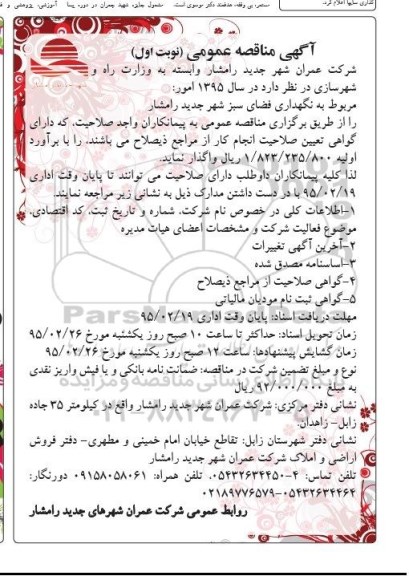 آگهی مناقصه عمومی (نوبت اول)
شرکت عمران شهر جدید رامشار وابسته به وزارت راه و
شهرسازی در نظر دارد در سال ۱۳۹۵ امور:
مربوط به نگهداری فضای سبز شهر جدید رامشار
را از طریق برگزاری مناقصه عمومی به پیمانکاران واجد صلاحیت، که دارای
گواهی تعیین صلاحیت انجام کار از مراجع ذیصلاح می باشند، را با برآورد
اولیه ۱/۸۲۳/۲۳۵/۸۰۰ ریال واگذار نماید.
لذا کلیه پیمانکاران داوطلب دارای صلاحیت می توانند تا پایان وقت اداری
۹۵/۰۲/۱۹ با در دست داشتن مدارک ذیل به نشانی زیر مراجعه نمایند.
۱-اطلاعات کلی در خصوص نام شرکت، شماره و تاریخ ثبت، کد اقتصادی،
موضوع فعالیت شرکت و مشخصات اعضای هیات مدیره
۲-آخرین آگهی تغییرات
۳-اساسنامه مصدق شده
۴-گواهی صلاحیت از مراجع ذیصلاح
۵-گواهی ثبت نام مودیان مالیاتی
مهلت دریافت اسناد: پایان وقت اداری ۹۵/۰۲/۱۹
زمان تحویل اسناد: حداکثر تا ساعت ۱۰ صبح روز یکشنبه مورخ ۹۵/۰۲/۲۶
زمان گشایش پیشنهادها: ساعت ۱۲ صبح روز یکشنبه مورخ ۹۵/۰۲/۲۶
نوع و مبلغ تضمین شرکت در مناقصه: ضمانت نامه بانکی و یا فیش واریز نقدی
به مبلغ ۹۲/۰۰۰/۰۰۰ ریال
نشانی دفتر مرکزی: شرکت عمران شهر جدید رامشار واقع در کیلومتر ۳۵ جاده
زابل- زاهدان.
نشانی دفتر شهرستان زابل: تقاطع خیابان امام خمینی و مطهری- دفتر فروش
اراضی و املاک شرکت عمران شهر جدید رامشار
تلفن تماس: ۴-۰۵۴۳۲۶۳۴۴۵۰ تلفن همراه: ۰۹۱۵۸۰۵۸۰۶۱ دورنگار:
۰۲۱۸۹۷۷۶۵۷۹-۰۵۴۳۲۶۳۴۴۶۴
روابط عمومی شرکت عمران شهرهای جدید رامشار